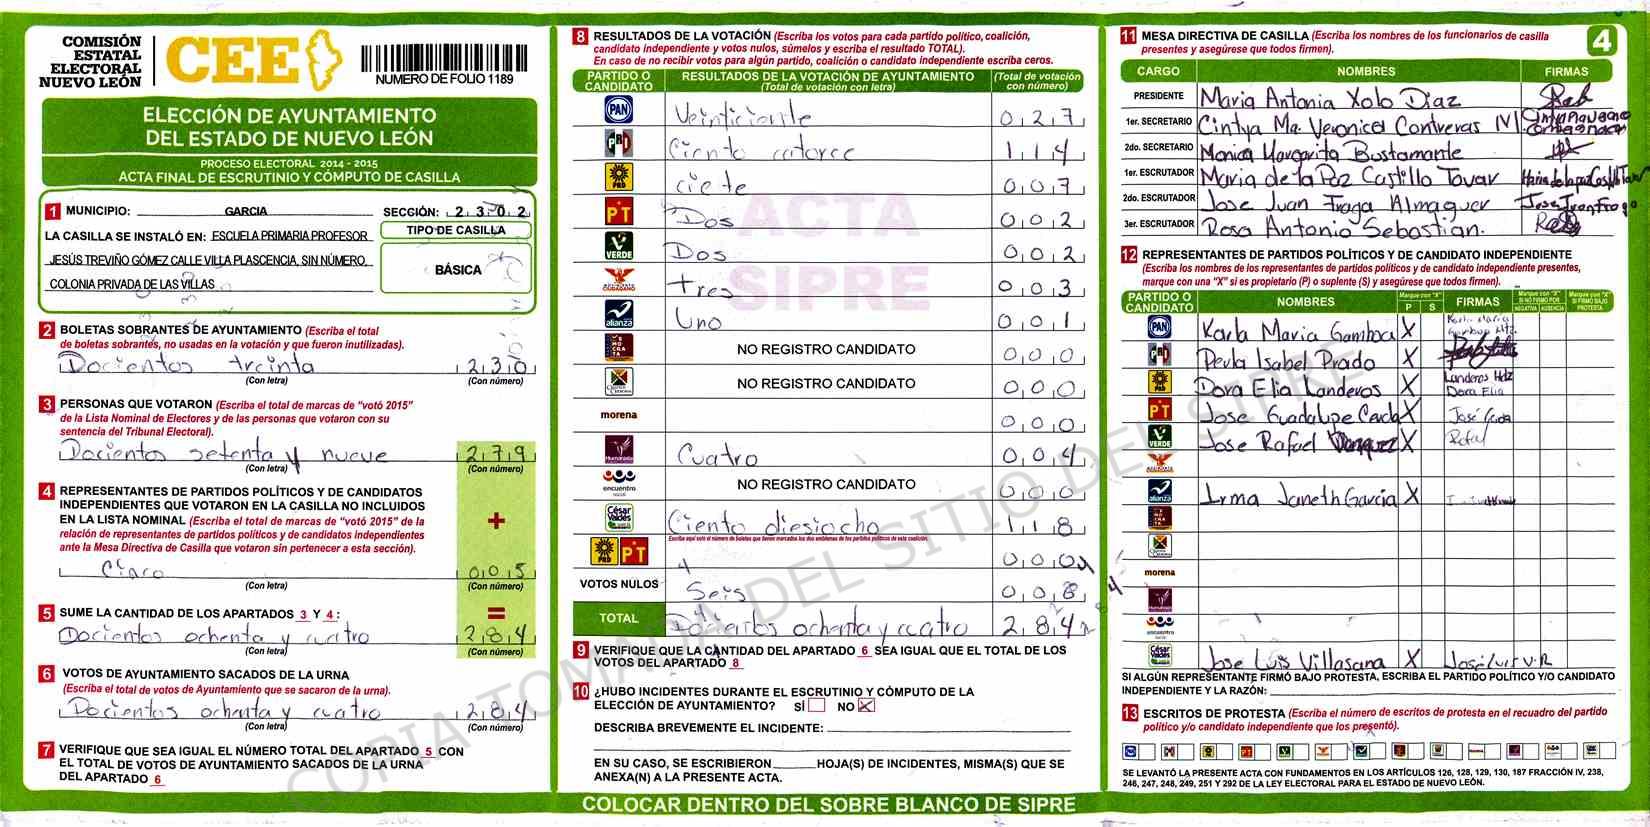 COMISIÓN
ESTATAL
ELECTORAL
NUEVO LEÓN
CEE
NUMERO DE FOLIO 1189
ELECCIÓN DE AYUNTAMIENTO
DEL ESTADO DE NUEVO LEÓN
PROCESO ELECTORAL 2014 - 2015
ACTA FINAL DE ESCRUTINIO Y CÓMPUTO DE CASILLA
1 MUNICIPIO: GARCIA SECCIÓN: 2302
LA CASILLA SE INSTALÓ EN: ESCUELA PRIMARIA PROFESOR
JESÚS TREVIÑO GÓMEZ CALLE VILLA PLASCENCIA, SIN NÚMERO,
COLONIA PRIVADA DE LAS VILLAS
TIPO DE CASILLA
BÁSICA
2 BOLETAS SOBRANTES DE AYUNTAMIENTO (Escriba el total
de boletas sobrantes, no usadas en la votación y que fueron inutilizadas).
Docientos treinta 230
(Con letra) (Con número)
3 PERSONAS QUE VOTARON (Escriba el total de marcas de “votó 2015”
de la Lista Nominal de Electores y de las personas que votaron con su
sentencia del Tribunal Electoral).
Docientos setenta y nueve 279
(Con letra) (Con número)
4 REPRESENTANTES DE PARTIDOS POLÍTICOS Y DE CANDIDATOS
INDEPENDIENTES QUE VOTARON EN LA CASILLA NO INCLUIDOS
EN LA LISTA NOMINAL (Escriba el total de marcas de “votó 2015” de la
relación de representantes de partidos políticos y de candidatos independientes
ante la Mesa Directiva de Casilla que votaron sin pertenecer a esta sección).
+
Cinco 005
(Con letra) (Con número)
=
5 SUME LA CANTIDAD DE LOS APARTADOS 3 Y 4:
Docientos ochenta y cuatro 284
(Con letra) (Con número)
6 VOTOS DE AYUNTAMIENTO SACADOS DE LA URNA
(Escriba el total de votos de Ayuntamiento que se sacaron de la urna).
Docientos ochenta y cuatro 284
(Con letra) (Con número)
7 VERIFIQUE QUE SEA IGUAL EL NÚMERO TOTAL DEL APARTADO 5 CON
EL TOTAL DE VOTOS DE AYUNTAMIENTO SACADOS DE LA URNA
DEL APARTADO 6
8 RESULTADOS DE LA VOTACIÓN (Escriba los votos para cada partido político, coalición,
candidato independiente y votos nulos, súmelos y escriba el resultado TOTAL).
En caso de no recibir votos para algún partido, coalición o candidato independiente escriba ceros.
PARTIDO O CANDIDATO RESULTADOS DE LA VOTACIÓN DE AYUNTAMIENTO (Total de votación con letra) (Total de votación con número)
PAN Veinticiente 027
PRI Ciento catorce 114
PRD ciete 007
PT Dos 002
VERDE Dos 002
tres 003
alianza Uno 001
NO REGISTRO CANDIDATO 000
NO REGISTRO CANDIDATO 000
morena 000
Humanista Cuatro 004
encuentro social NO REGISTRO CANDIDATO 000
César Valdés Ciento diesiocho 118
Escriba aquí solo el número de boletas que tienen marcados los dos emblemas de los partidos políticos de esta coalición.
PRD PT 000
VOTOS NULOS Seis 008
TOTAL Docientos ochenta y cuatro 284
9 VERIFIQUE QUE LA CANTIDAD DEL APARTADO 6 SEA IGUAL QUE EL TOTAL DE LOS
VOTOS DEL APARTADO 8
10 ¿HUBO INCIDENTES DURANTE EL ESCRUTINIO Y CÓMPUTO DE LA
ELECCIÓN DE AYUNTAMIENTO? SÍ NO X
DESCRIBA BREVEMENTE EL INCIDENTE:
EN SU CASO, SE ESCRIBIERON HOJA(S) DE INCIDENTES, MISMA(S) QUE SE
ANEXA(N) A LA PRESENTE ACTA.
ACTA
SIPRE
COPIA TOMADA DEL SITIO DEL SIPRE
COLOCAR DENTRO DEL SOBRE BLANCO DE SIPRE
4
11 MESA DIRECTIVA DE CASILLA (Escriba los nombres de los funcionarios de casilla
presentes y asegúrese que todos firmen).
CARGO NOMBRES FIRMAS
PRESIDENTE Maria Antonia Xolo Diaz
1er. SECRETARIO Cintya Ma. Veronica Contreras M.
2do. SECRETARIO Monica Margarita Bustamante
1er. ESCRUTADOR Maria de la Paz Castillo Tovar
2do. ESCRUTADOR Jose Juan Fraga Almaguer
3er. ESCRUTADOR Rosa Antonio Sebastian.
12 REPRESENTANTES DE PARTIDOS POLÍTICOS Y DE CANDIDATO INDEPENDIENTE
(Escriba los nombres de los representantes de partidos políticos y de candidato independiente presentes,
marque con una "X" si es propietario (P) o suplente (S) y asegúrese que todos firmen).
PARTIDO O CANDIDATO NOMBRES Marque con "X" P S FIRMAS Marque con "X" SI NO FIRMÓ POR NEGATIVA AUSENCIA Marque con "X" SI FIRMÓ BAJO PROTESTA
PAN Karla Maria Gamboa X
PRI Perla Isabel Prado X
PRD Dora Elia Landeros X Landeros Hdz Dora Elia
PT Jose Guadalupe Cerda X José Cerda
VERDE Jose Rafael X Rafal
alianza Irma Janeth Garcia X
morena
Humanista
encuentro social
César Valdés Jose Luis Villasana X José Luis V.R
SI ALGÚN REPRESENTANTE FIRMÓ BAJO PROTESTA, ESCRIBA EL PARTIDO POLÍTICO Y/O CANDIDATO
INDEPENDIENTE Y LA RAZÓN:
13 ESCRITOS DE PROTESTA (Escriba el número de escritos de protesta en el recuadro del partido
político y/o candidato independiente que los presentó).
SE LEVANTÓ LA PRESENTE ACTA CON FUNDAMENTOS EN LOS ARTÍCULOS 126, 128, 129, 130, 187 FRACCIÓN IV, 238,
246, 247, 248, 249, 251 Y 292 DE LA LEY ELECTORAL PARA EL ESTADO DE NUEVO LEÓN.